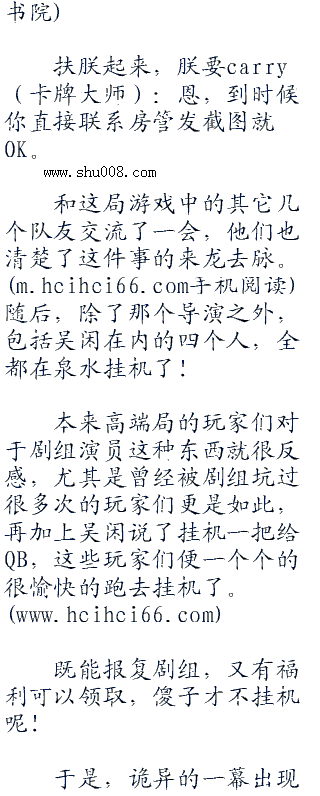 书院)
扶朕起来，朕要carry
（卡牌大师）：恩，到时候
你直接联系房管发截图就
OK。
www.shu008.com
和这局游戏中的其它几
个队友交流了一会，他们也
清楚了这件事的来龙去脉。
(m.hcihci66.com手机阅读)
随后，除了那个导演之外，
包括吴闲在内的四个人，全
都在泉水挂机了！
本来高端局的玩家们对
于剧组演员这种东西就很反
感，尤其是曾经被剧组坑过
很多次的玩家们更是如此，
再加上吴闲说了挂机一把给
QB，这些玩家们便一个个的
很愉快的跑去挂机了。
(www.hcihci66.com)
既能报复剧组，又有福
利可以领取，傻子才不挂机
呢！
于是，诡异的一幕出现